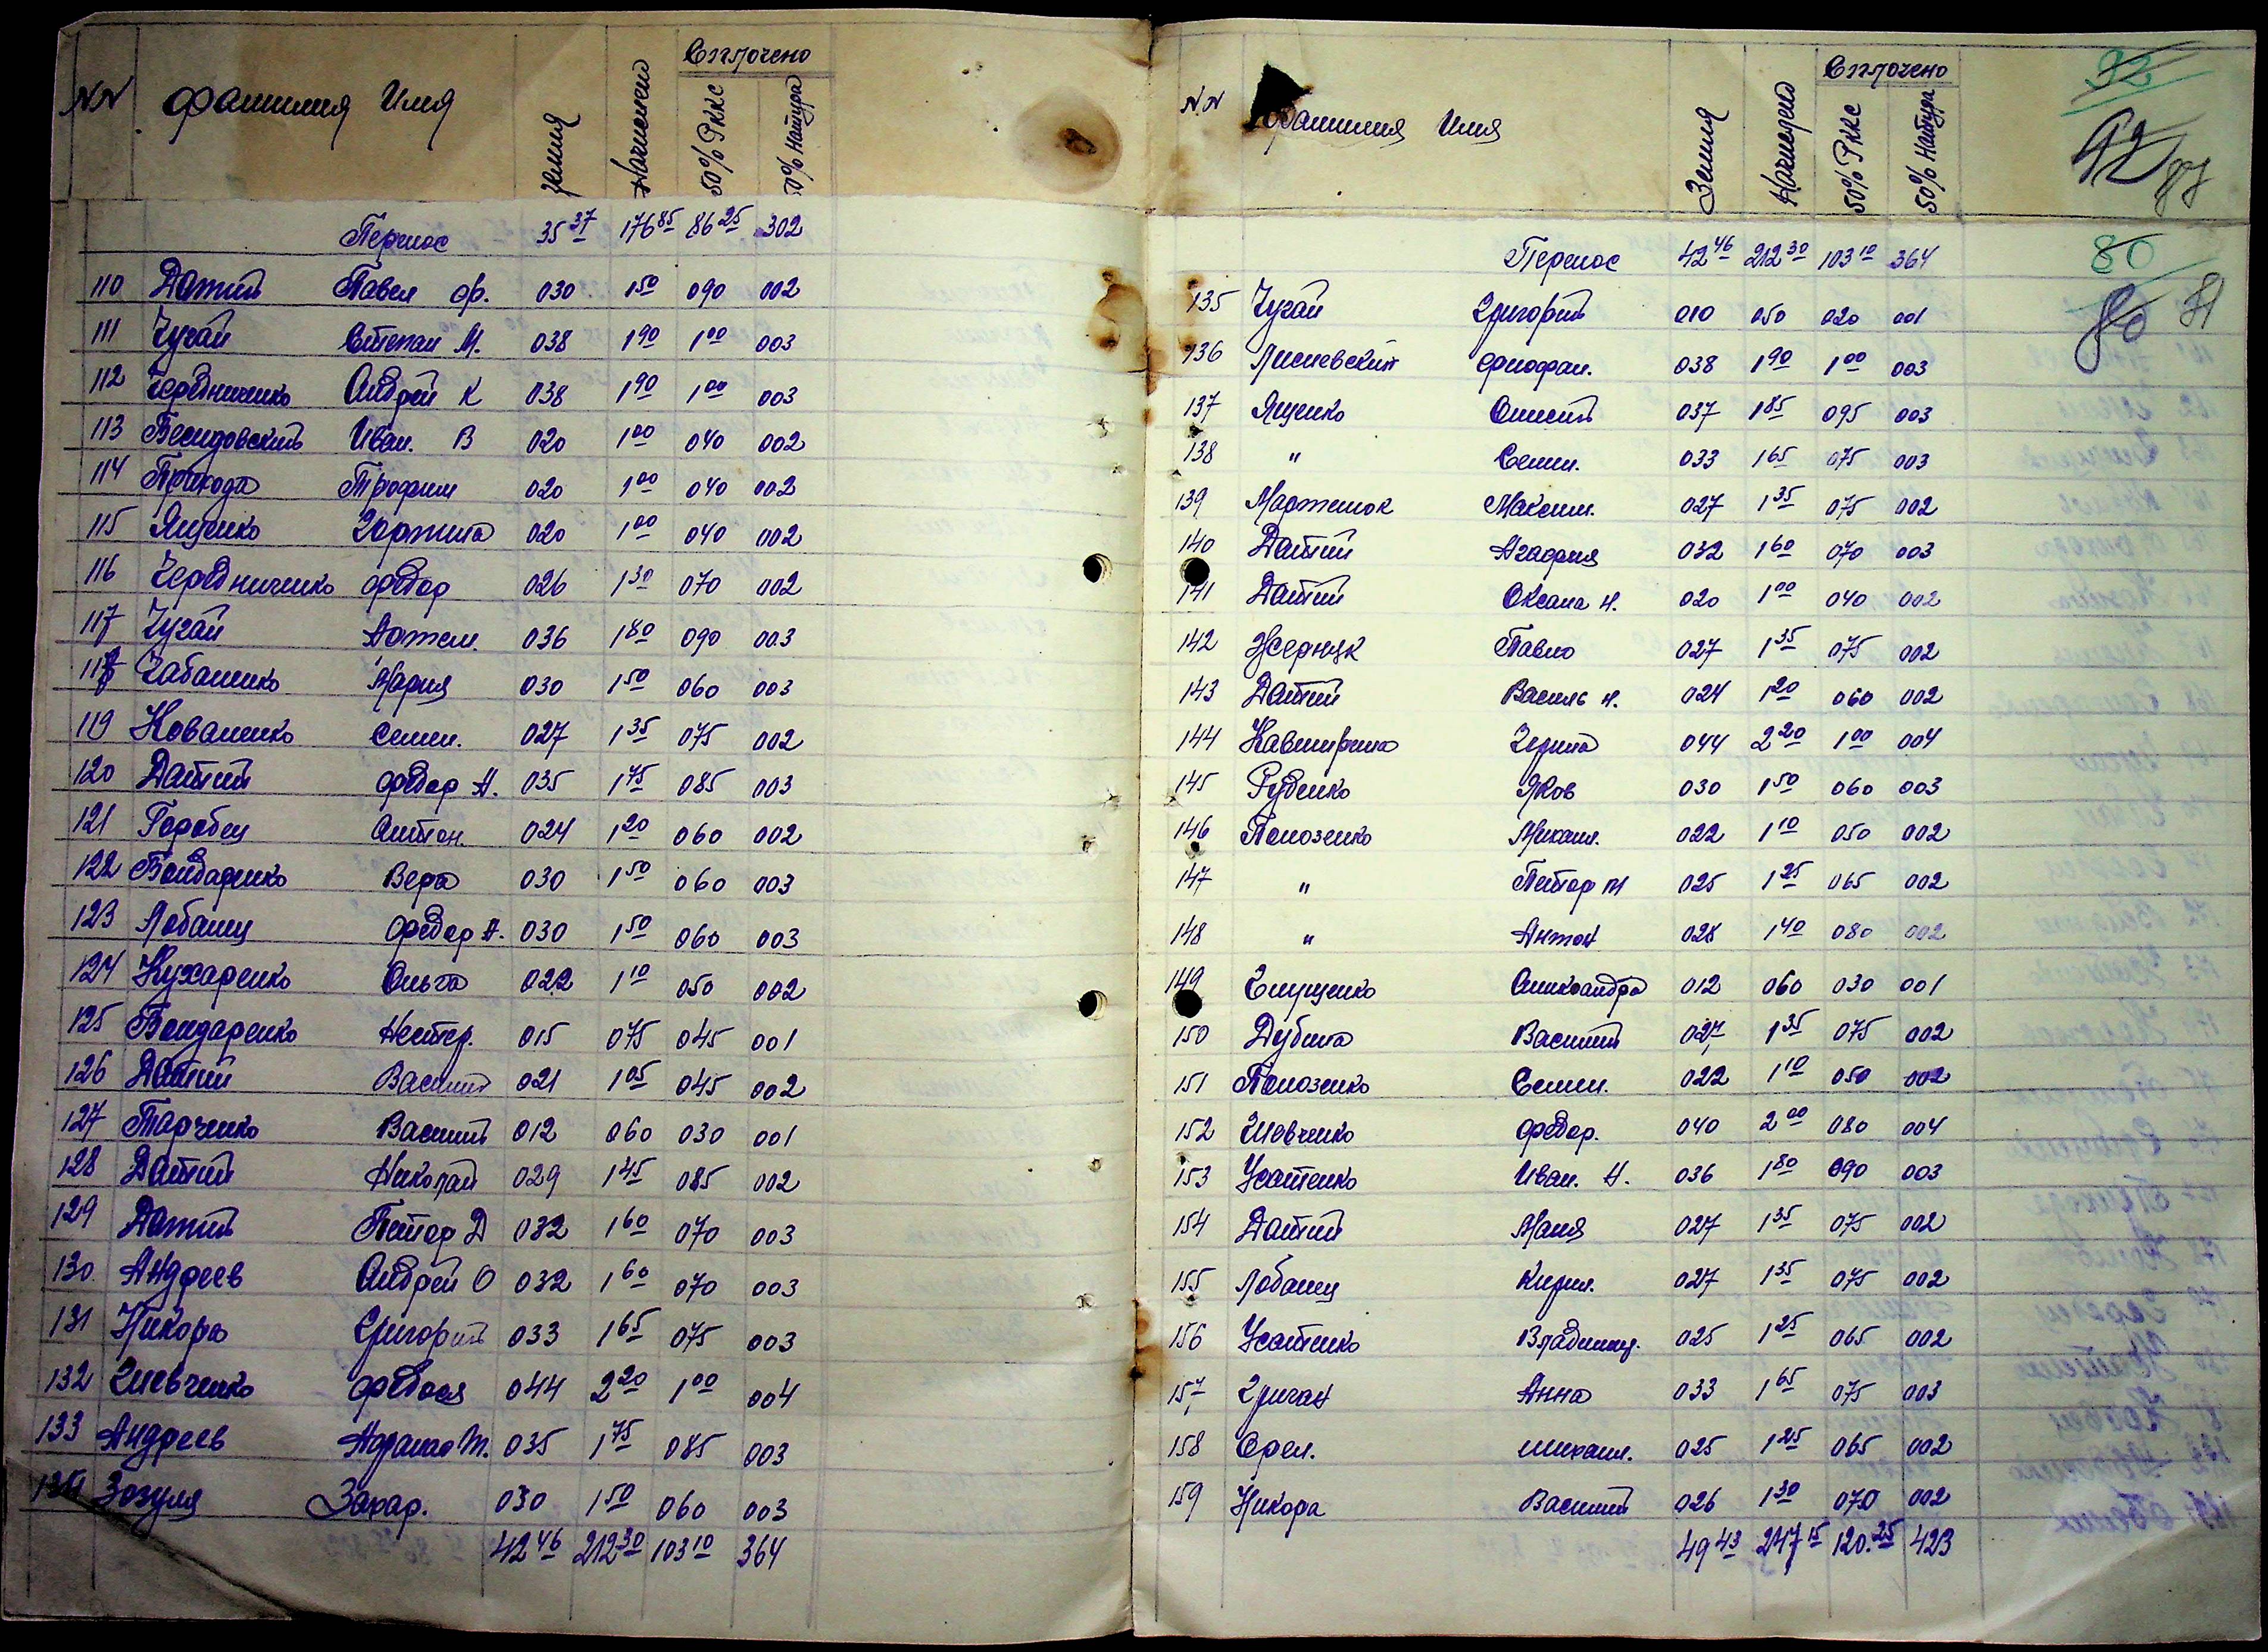 Сплочено
NN Фамилия Имя Земля Начислено 50% РККС 50% Натура
Перенос 35 37 176 85 86 25 302
110 Датий Павел Ф. 030 1 50 090 002
111 Чугай Степан М. 038 1 90 1 00 003
112 Чередниченко Андрей К 038 1 90 1 00 003
113 Беседовский Иван. В 020 1 00 040 002
114 Прихода Трофим 020 1 00 040 002
115 Яценко Горпина 020 1 00 040 002
116 Чередниченко Федор 026 1 30 070 002
117 Чугай Артем. 036 1 80 090 003
118 Чабаненко Мария 030 1 50 060 003
119 Коваленко Семен. 027 1 35 075 002
120 Датий Федор А. 035 1 75 085 003
121 Горобец Антон. 024 1 20 060 002
122 Бондаренко Вера 030 1 50 060 003
123 Лобанец Федор А. 030 1 50 060 003
124 Кухаренко Ольга 022 1 10 050 002
125 Бондаренко Нестер. 015 075 045 001
126 Датий Василий 021 1 05 045 002
127 Харченко Василий 012 060 030 001
128 Датий Николай 029 1 45 085 002
129 Датий Петор Д 032 1 60 070 003
130 Андреев Андрей О 032 1 60 070 003
131 Никора Григорий 033 1 65 075 003
132 Шевченко Федося 044 2 20 1 00 004
133 Андреев Т. 035 1 75 085 003
134 Зозуля Захар. 030 1 50 060 003
42 46 212 30 103 10 364
Сплочено
NN Фамилия Имя Земля Начислено 50% РККС 50% Натура
92
Перенос 42 46 212 30 103 10 364
80
80 81
135 Чугай Григорий 010 050 020 001
136 Лисневский 038 1 90 1 00 003
137 Яценко Онисий 037 1 85 095 003
138 " Семен. 033 1 65 075 003
139 Мартенюк Максим. 027 1 35 075 002
140 Датий Агафия 032 1 60 070 003
141 Датий Оксана Н. 020 1 00 040 002
142 Жернук Павло 027 1 35 075 002
143 Датий Василь Н. 024 1 20 060 002
144 044 2 20 1 00 004
145 Руденко Яков 030 1 50 060 003
146 Полозенко Михаил. 022 1 10 050 002
147 " Петор М 025 1 25 065 002
148 " Антон 028 1 40 080 002
149 Глущенко Александра 012 060 030 001
150 Дубина Василий 027 1 35 075 002
151 Полозенко Семен. 022 1 10 050 002
152 Шевченко Федор. 040 2 00 080 004
153 Усатенко Иван. Н. 036 1 80 090 003
154 Датий Маня 027 1 35 075 002
155 Лобанец Кирил. 027 1 35 075 002
156 Усатенко Владимир. 025 1 25 065 002
157 Григан Анна 033 1 65 075 003
158 Орел. михаил. 025 1 25 065 002
159 Никора Василий 026 1 30 070 002
49 43 247 15 120. 25 423